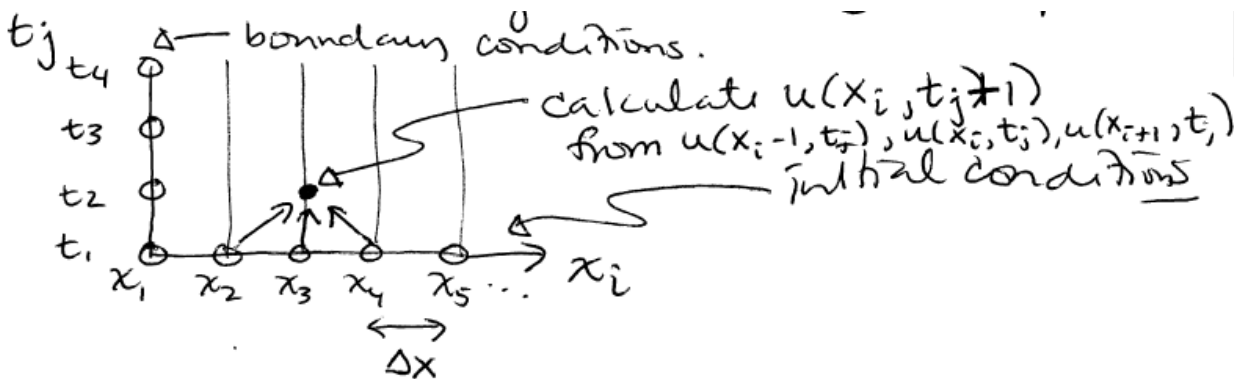 tj
boundary conditions.
t4
calculate u(xi, tj+1)
t3
from u(xi-1, tj), u(xi, tj), u(xi+1, tj)
initial conditions
t2
t1
x1 x2 x3 x4 x5 ... xi
Δx